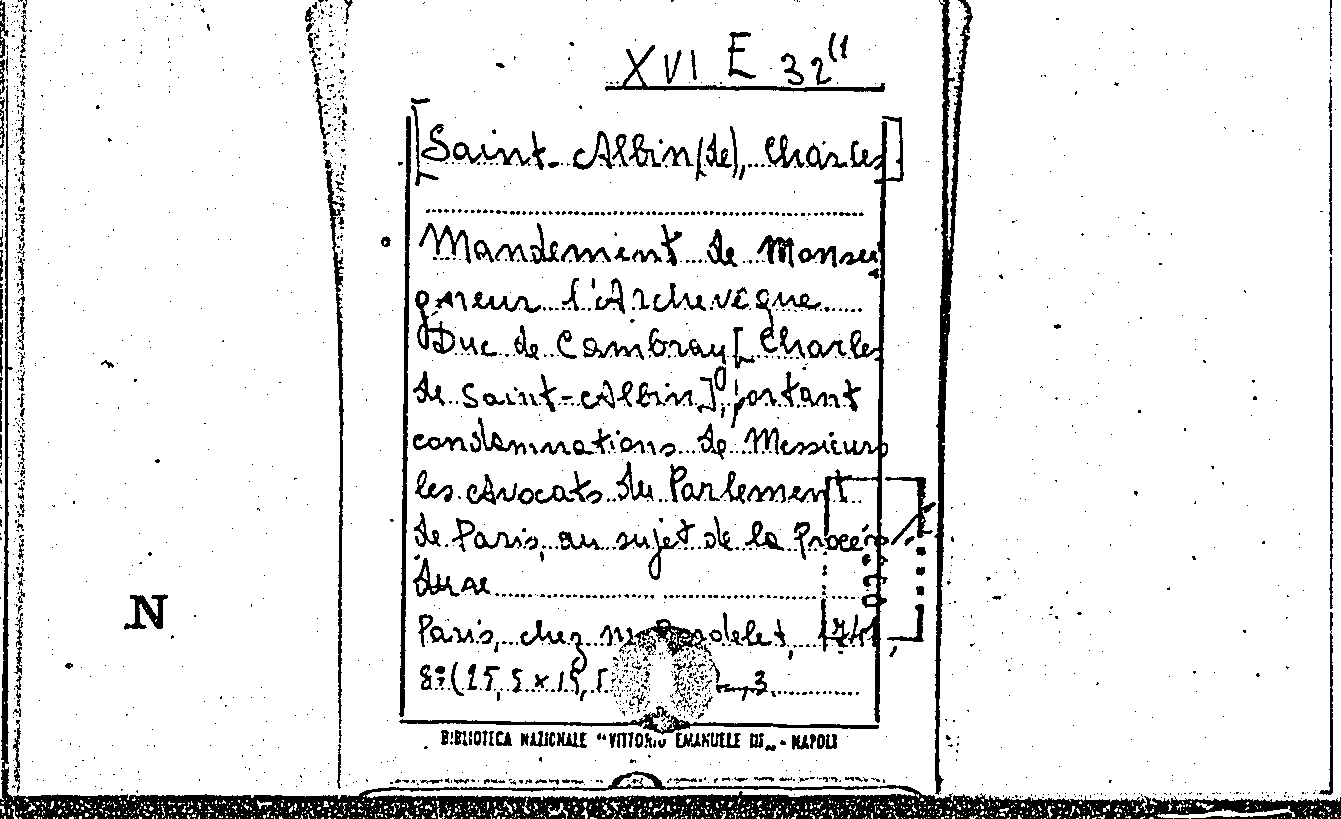 XVI E 32(1
[Saint-Albin (de), Charles]
Mandement de Monsei
gneur l'Archevêque
Duc de Cambray [Charles
de Saint-Albin], portant
condamnations de Messieurs
les Avocats du Parlement
de Paris, au sujet de la Procé
dure
Paris, chez 1741,
8°: (25,5 x 19,5 3.
N
BIBLIOTECA NAZIONALE "VITTORIO EMANUELE - NAPOLI